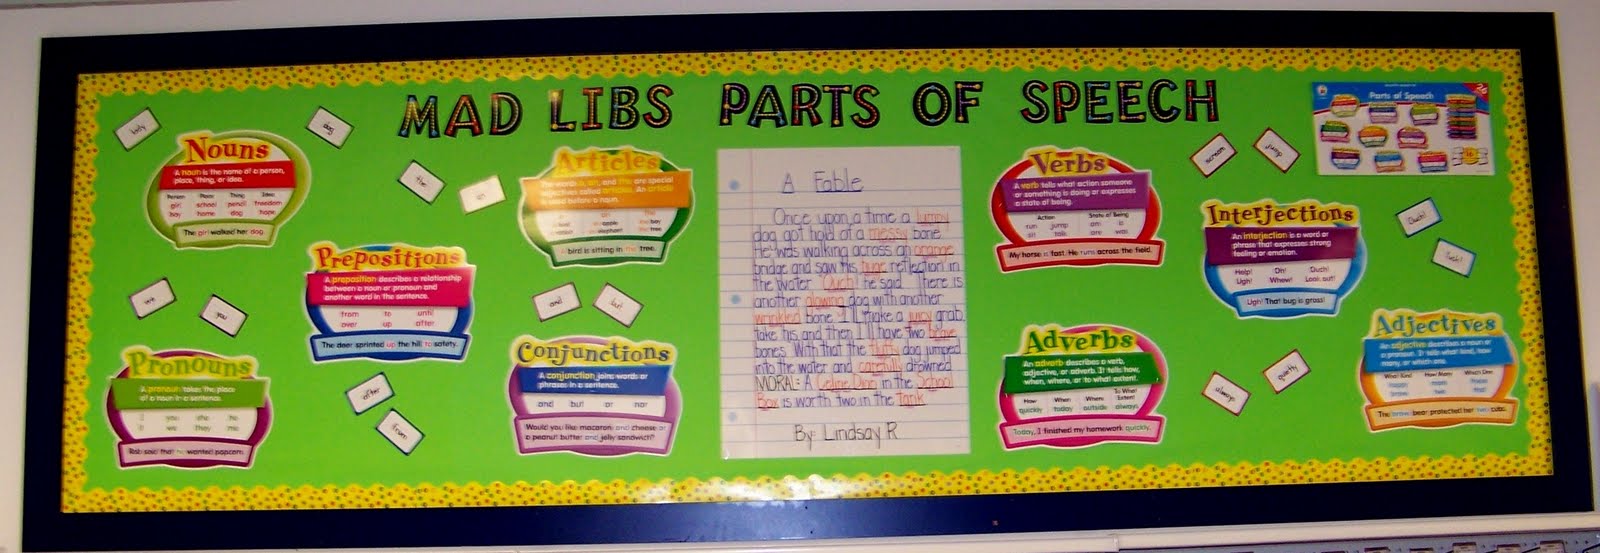 MAD LIBS PARTS OF SPEECH
Parts of Speech
26
baby
dog
Nouns
A noun is the name of a person,
place, thing, or idea.
Person Place Thing Idea
girl school pencil freedom
boy home dog hope
The girl walked her dog.
the
an
Articles
The words a, an, and the are special
adjectives called articles. An article
is used before a noun.
a an the
A bird is sitting in the tree.
Prepositions
A preposition describes a relationship
between a noun or pronoun and
another word in the sentence.
from to until
over up after
The deer sprinted up the hill to safety.
we
you
Pronouns
A pronoun takes the place
of a noun in a sentence.
I you she he
it we they me
Rob said that he wanted popcorn.
after
from
and
but
Conjunctions
A conjunction joins words or
phrases in a sentence.
and but or nor
Would you like macaroni and cheese or
a peanut butter and jelly sandwich?
A Fable
Once upon a time a lumpy
dog got hold of a messy bone.
He was walking across an orange
bridge and saw his huge reflection in
the water. "Ouch!" he said. "There is
another glowing dog with another
wrinkled bone. I'll make a juicy grab,
take his and then I'll have two brave
bones." With that the fluffy dog jumped
into the water and carefully drowned.
MORAL: A Celine Dion in the School
Box is worth two in the Tank.
By: Lindsay R
Verbs
A verb tells what action someone
or something is doing or expresses
a state of being.
Action State of Being
run jump am is
sit talk are was
My horse is fast. He runs across the field.
scream
jump
Interjections
An interjection is a word or
phrase that expresses strong
feeling or emotion.
Help! Oh! Ouch!
Ugh! Whew! Look out!
Ugh! That bug is gross!
Ouch!
Adverbs
An adverb describes a verb,
adjective, or adverb. It tells how,
when, where, or to what extent.
How When Where To What Extent
quickly today outside always
Today, I finished my homework quickly.
always
quietly
Adjectives
An adjective describes a noun or
a pronoun. It tells what kind, how
many, or which one.
What Kind How Many Which One
happy many these
brave two that
The brave bear protected her two cubs.